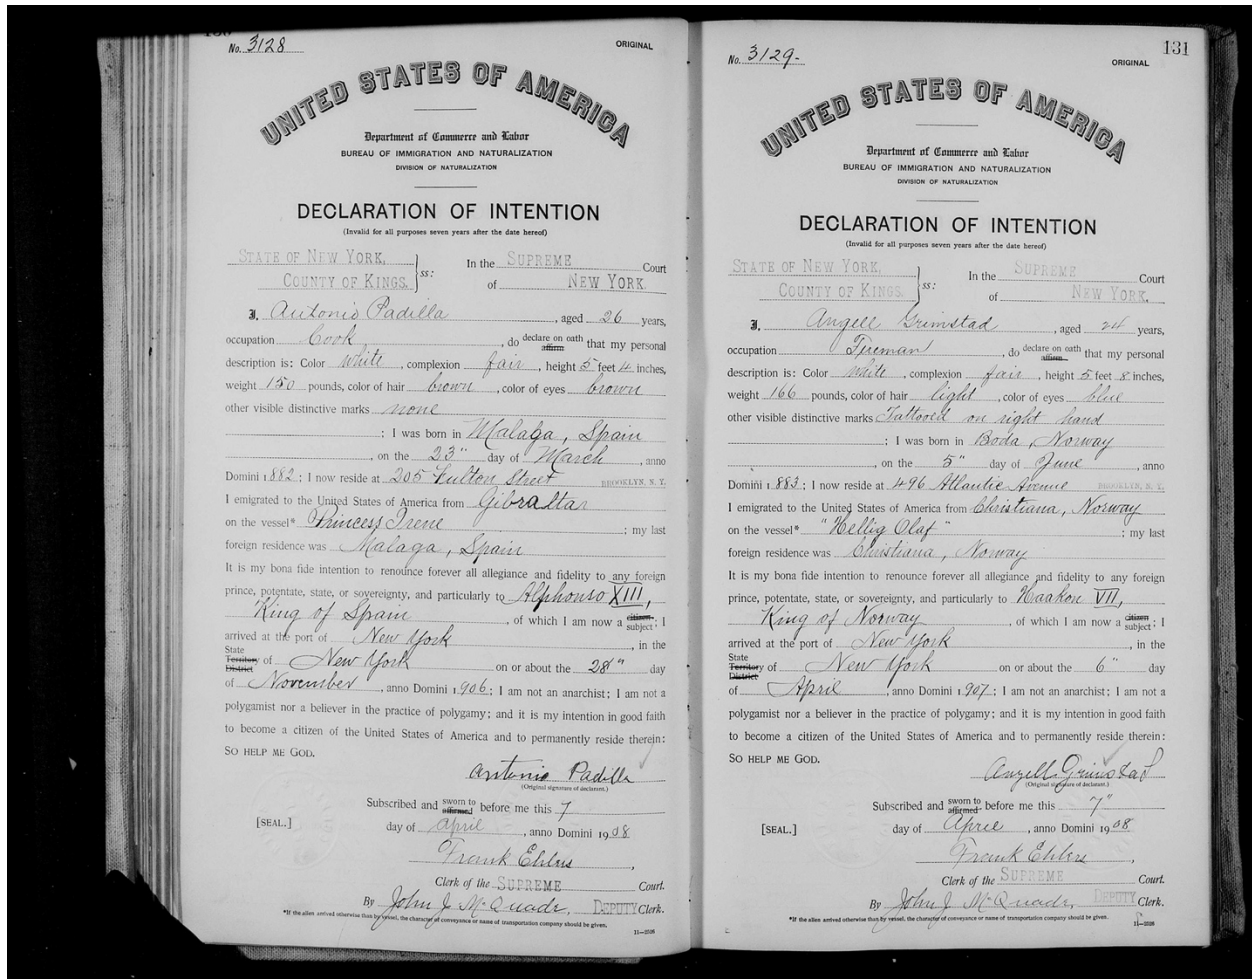 No. 3128
ORIGINAL
UNITED STATES OF AMERICA
Department of Commerce and Labor
BUREAU OF IMMIGRATION AND NATURALIZATION
DIVISION OF NATURALIZATION
DECLARATION OF INTENTION
(Invalid for all purposes seven years after the date hereof)
STATE OF NEW YORK,
COUNTY OF KINGS. ss:
In the SUPREME Court
of NEW YORK.
I, Antonio Padilla, aged 26 years,
occupation Cook, do declare on oath affirm that my personal
description is: Color white, complexion fair, height 5 feet 4 inches,
weight 150 pounds, color of hair brown, color of eyes brown
other visible distinctive marks none
; I was born in Malaga, Spain
, on the 23" day of March, anno
Domini 1882; I now reside at 205 Fulton Street BROOKLYN, N. Y.
I emigrated to the United States of America from Gibraltar
on the vessel* Princess Irene; my last
foreign residence was Malaga, Spain
It is my bona fide intention to renounce forever all allegiance and fidelity to any foreign
prince, potentate, state, or sovereignty, and particularly to Alphonso XIII,
King of Spain, of which I am now a citizen subject; I
arrived at the port of New York, in the
State Territory District of New York on or about the 28" day
of November, anno Domini 1906; I am not an anarchist; I am not a
polygamist nor a believer in the practice of polygamy; and it is my intention in good faith
to become a citizen of the United States of America and to permanently reside therein:
SO HELP ME GOD.
Antonio Padilla
(Original signature of declarant.)
Subscribed and sworn to affirmed before me this 7
[SEAL.] day of April, anno Domini 1908
Frank Ehlers,
Clerk of the SUPREME Court.
By John J McQuade, DEPUTY Clerk.
*If the alien arrived otherwise than by vessel, the character of conveyance or name of transportation company should be given.
11—2526
131
No. 3129-
ORIGINAL
UNITED STATES OF AMERICA
Department of Commerce and Labor
BUREAU OF IMMIGRATION AND NATURALIZATION
DIVISION OF NATURALIZATION
DECLARATION OF INTENTION
(Invalid for all purposes seven years after the date hereof)
STATE OF NEW YORK,
COUNTY OF KINGS. ss:
In the SUPREME Court
of NEW YORK.
I, Angell Grimstad, aged 24 years,
occupation Fireman, do declare on oath affirm that my personal
description is: Color white, complexion fair, height 5 feet 8 inches,
weight 166 pounds, color of hair light, color of eyes blue
other visible distinctive marks Tattooed on right hand
; I was born in Boda, Norway
, on the 5" day of June, anno
Domini 1883; I now reside at 496 Atlantic Avenue BROOKLYN, N. Y.
I emigrated to the United States of America from Christiana, Norway
on the vessel* "Hellig Olaf"; my last
foreign residence was Christiana, Norway
It is my bona fide intention to renounce forever all allegiance and fidelity to any foreign
prince, potentate, state, or sovereignty, and particularly to Haakon VII,
King of Norway, of which I am now a citizen subject; I
arrived at the port of New York, in the
State Territory District of New York on or about the 6" day
of April, anno Domini 1907; I am not an anarchist; I am not a
polygamist nor a believer in the practice of polygamy; and it is my intention in good faith
to become a citizen of the United States of America and to permanently reside therein:
SO HELP ME GOD.
Angell Grimstad
(Original signature of declarant.)
Subscribed and sworn to affirmed before me this 7"
[SEAL.] day of April, anno Domini 1908
Frank Ehlers,
Clerk of the SUPREME Court.
By John J McQuade, DEPUTY Clerk.
*If the alien arrived otherwise than by vessel, the character of conveyance or name of transportation company should be given.
11—2526